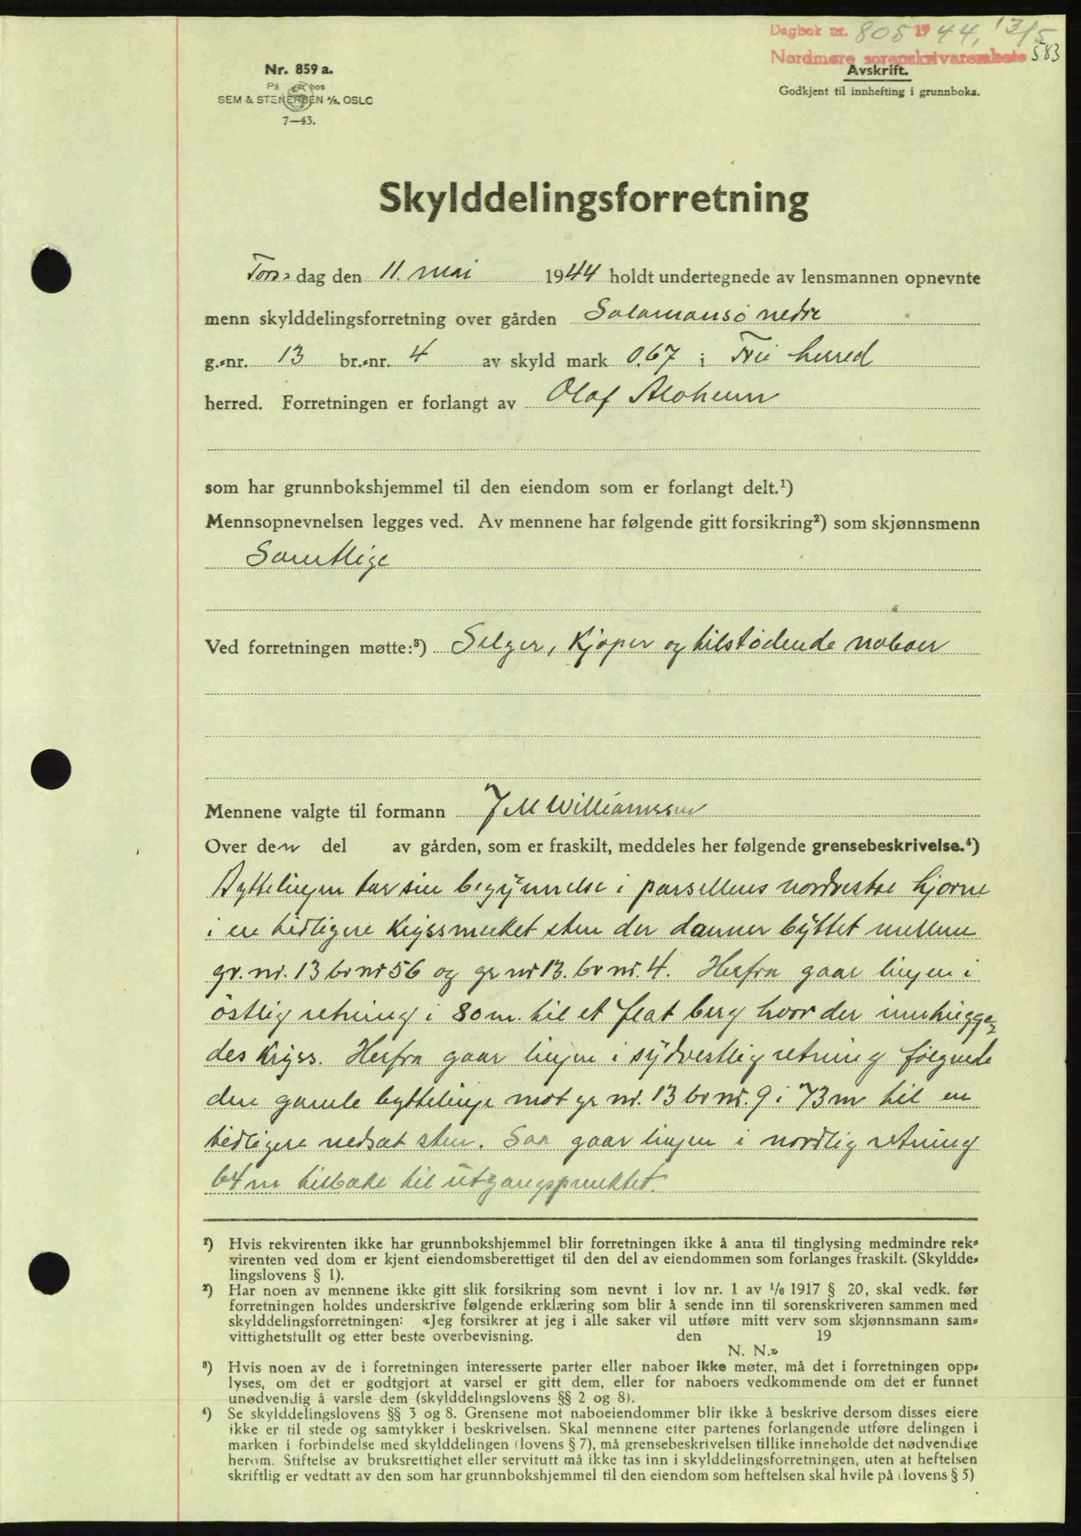 Dagbok nr. 805 1944, 13/5
Nordmøre sorenskriverembete 583
Nr. 859 a.
På lager hos
SEM & STENERSEN A/S, OSLO
7—43.
Avskrift.
Godkjent til innhefting i grunnboka.
Skylddelingsforretning
Torsdag den 11. mai 1944 holdt undertegnede av lensmannen opnevnte
menn skylddelingsforretning over gården Salamonsø nedre
g.-nr. 13 br.-nr. 4 av skyld mark 0.67 i Frei herred
herred. Forretningen er forlangt av Olaf
som har grunnbokshjemmel til den eiendom som er forlangt delt.¹)
Mennsopnevnelsen legges ved. Av mennene har følgende gitt forsikring²) som skjønnsmenn
Samtlige
Ved forretningen møtte:³) Selger, Kjøper og tilstødende naboer
Mennene valgte til formann J M Williamssen
Over den del av gården, som er fraskilt, meddeles her følgende grensebeskrivelse.⁴)
Byttelinjen har sin begynnelse i parsellens nordvestre hjørne
i en tidligere krysmerket sten der danner byttet mellem
gr. nr. 13 br nr 56 og gr nr 13. br nr. 4. Herfra gaar linjen i
østlig retning i 80 m. til et flat berg hvor der innhugge-
des kryss. Herfra gaar linjen i sydvestlig retning følgende
den gamle byttelinje mot gr nr. 13 br nr. 9 i 73 m til en
tidligere nedsat sten. Saa gaar linjen i nordlig retning
64 m tilbake til utgangspunktet.
¹) Hvis rekvirenten ikke har grunnbokshjemmel blir forretningen ikke å anta til tinglysing medmindre rek-
virenten ved dom er kjent eiendomsberettiget til den del av eiendommen som forlanges fraskilt. (Skyldde-
lingslovens § 1).
²) Har noen av mennene ikke gitt slik forsikring som nevnt i lov nr. 1 av 1/6 1917 § 20, skal vedk. før
forretningen holdes underskrive følgende erklæring som blir å sende inn til sorenskriveren sammen med
skylddelingsforretningen: «Jeg forsikrer at jeg i alle saker vil utføre mitt verv som skjønnsmann sam-
vittighetsfullt og etter beste overbevisning. den 19
N. N.»
³) Hvis noen av de i forretningen interesserte parter eller naboer ikke møter, må det i forretningen opp-
lyses, om det er godtgjort at varsel er gitt dem, eller for naboers vedkommende om det er funnet
unødvendig å varsle dem (skylddelingslovens §§ 2 og 8).
⁴) Se skylddelingslovens §§ 3 og 8. Grensene mot naboeiendommer blir ikke å beskrive dersom disses eiere
ikke er til stede og samtykker i beskrivelsen. Skal mennene etter partenes forlangende utføre delingen i
marken i forbindelse med skylddelingen (lovens § 7), må grensebeskrivelsen tillike inneholde det nødvendige
herom. Stiftelse av bruksrettighet eller servitutt må ikke tas inn i skylddelingsforretningen, uten at heftelsen
skriftlig er vedtatt av den som har grunnbokshjemmel til den eiendom som heftelsen skal hvile på (lovens § 5)